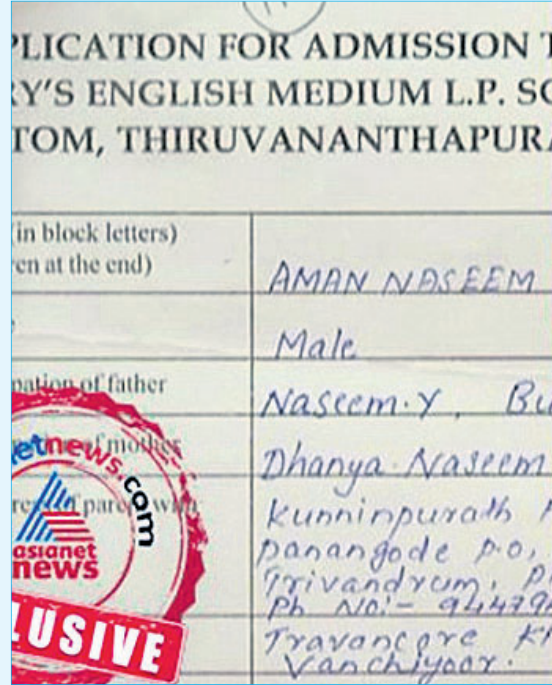 PLICATION FOR ADMISSION T
RY'S ENGLISH MEDIUM L.P. SC
TOM, THIRUVANANTHAPURA
(in block letters)
en at the end)
AMAN NASEEM
Male
pation of father
Naseem.Y, Bu
of mother
Dhanya Naseem
of parent with
Kunninpurath
Panangode P.O,
Trivandrum,
Ph No:- 94479
Travancore
Vanchiyoor.
etnews.com
asianet
news
LUSIVE